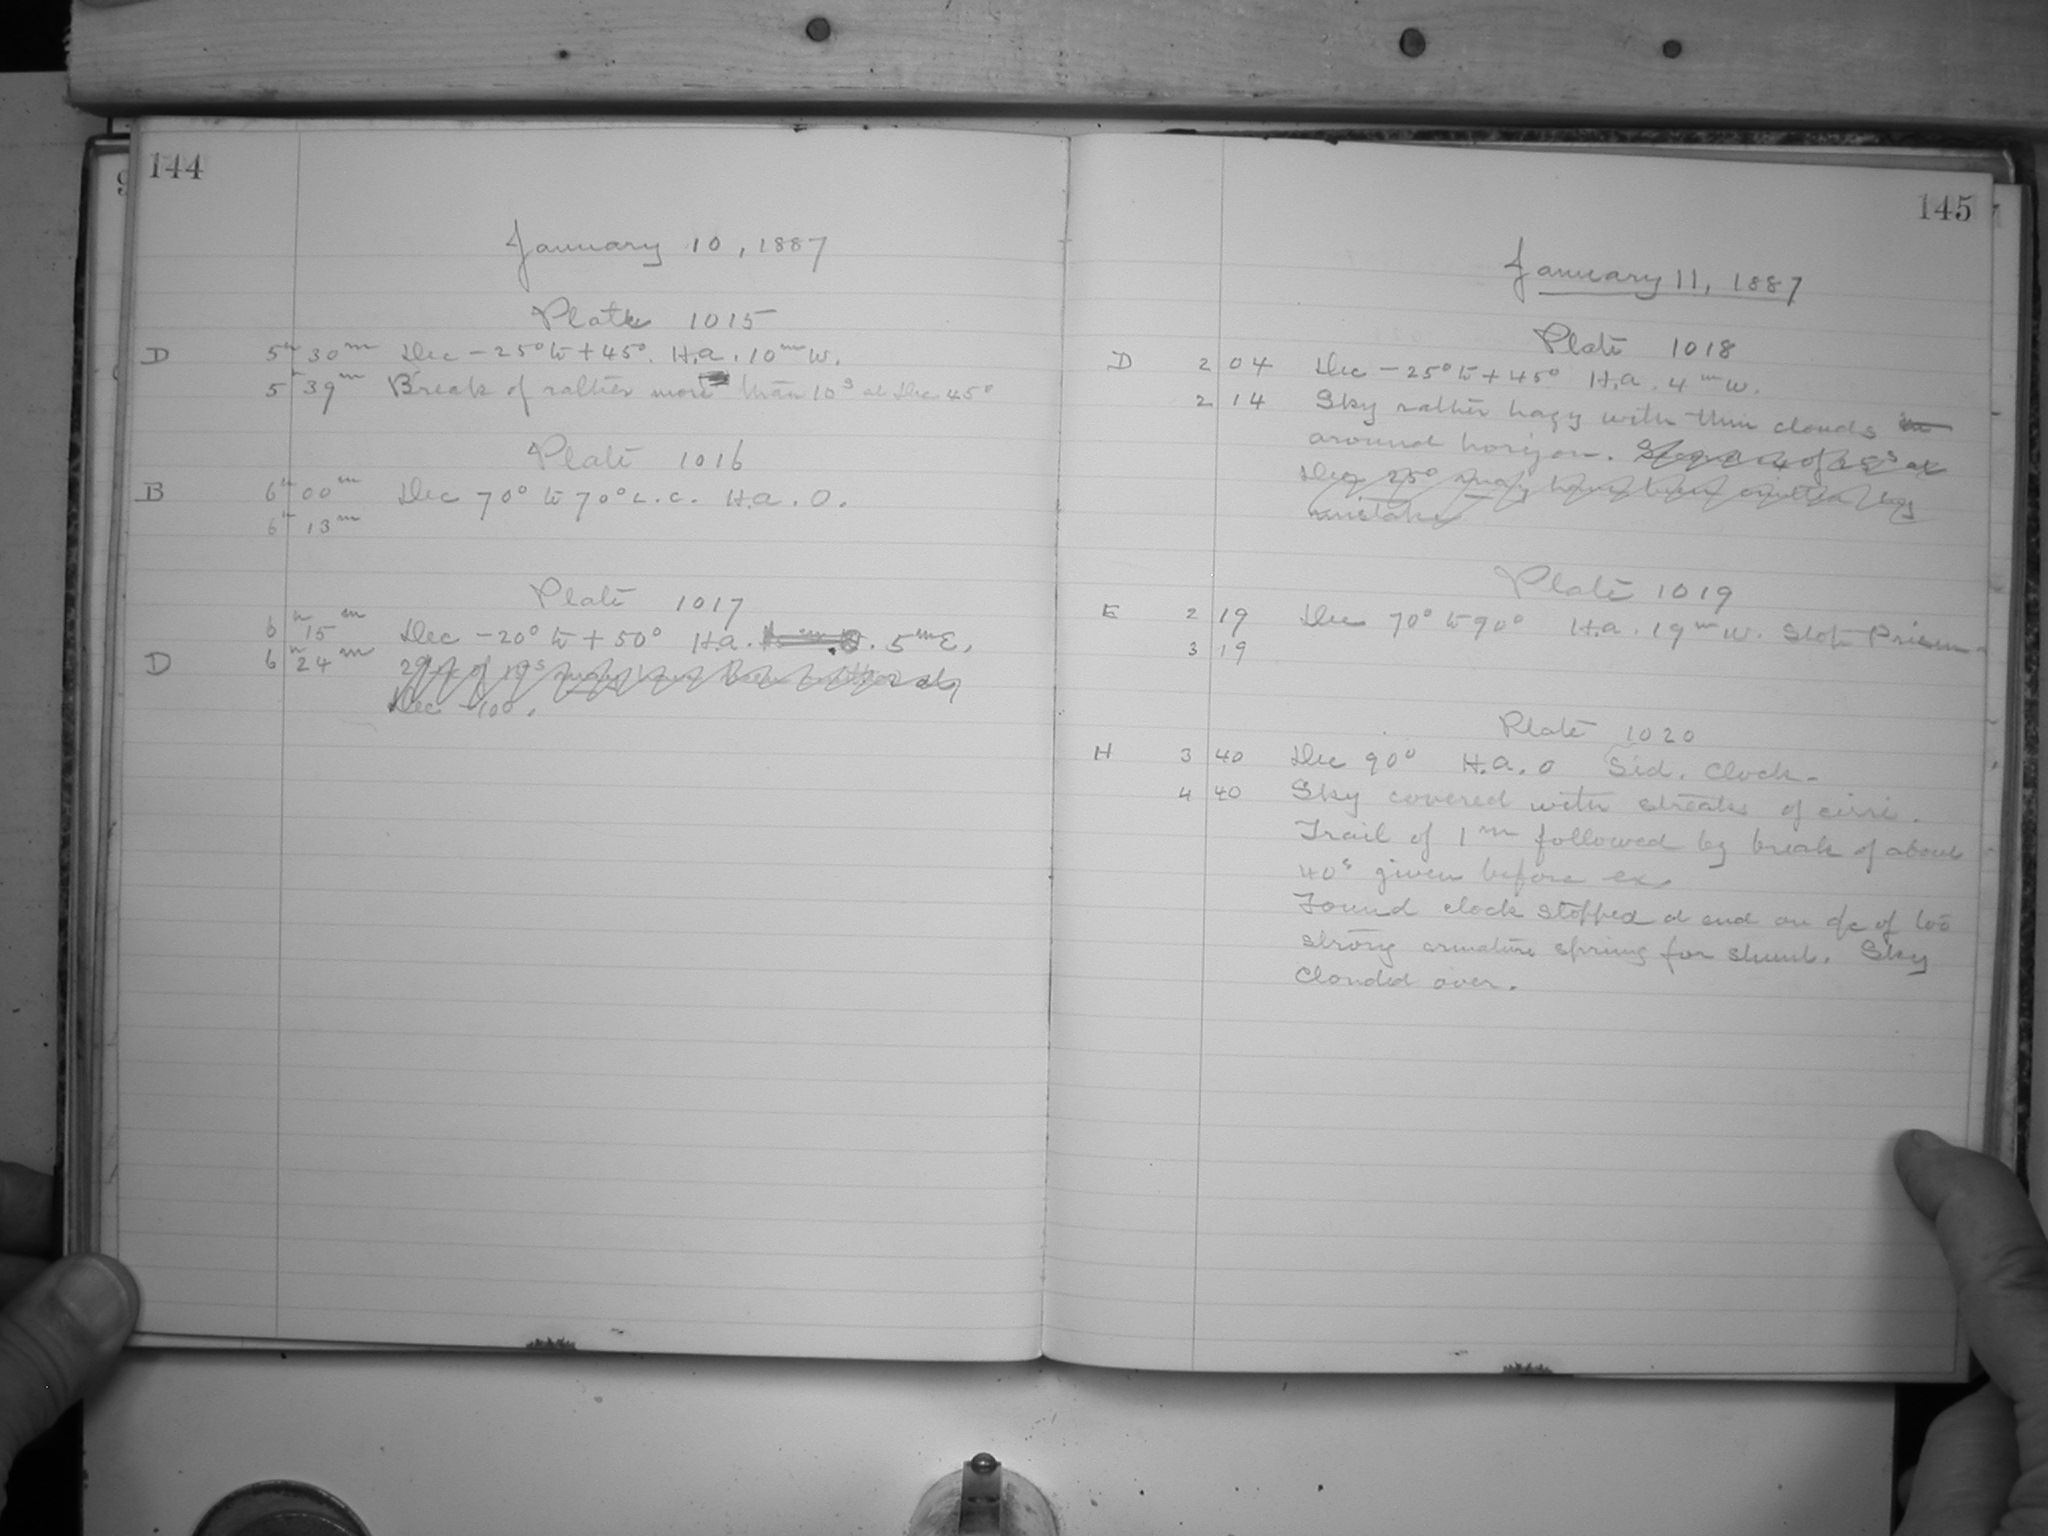 144
January 10, 1887
Plate 1015
D 5h 30m Dec -25° to +45°. H.a. 10m W.
5h 39m Break of rather more than 10s at Dec 45°
Plate 1016
B 6h 00m Dec 70° to 70° L.C. H.a. 0.
6h 13m
Plate 1017
6h 15m Dec -20° to +50° H.a. 5m E.
D 6h 24m
Dec -10°.
145
January 11, 1887
Plate 1018
D 2 04 Dec -25° to +45° H.a. 4m W.
2 14 Sky rather hazy with thin clouds
around horizon.
Dec 25° may have been omitted by
mistake
Plate 1019
E 2 19 Dec 70° to 90° H.a. 19m W. Prism
3 19
Plate 1020
H 3 40 Dec 90° H.a. 0 Sid. Clock.
4 40 Sky covered with streaks of cirri.
Trail of 1m followed by break of about
40s given before ex.
Found clock stopped at end on a/c of too
strong armature spring for shunt. Sky
Clouded over.